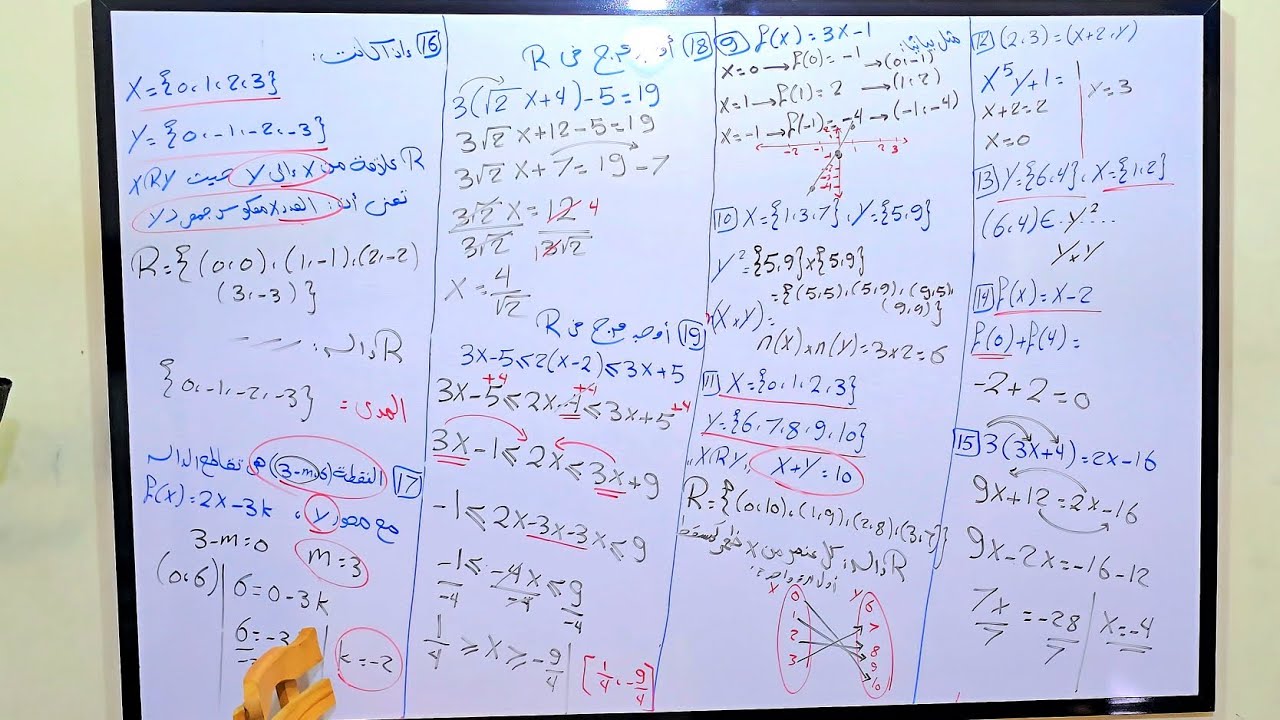 12 (2,3) = (x+2, y)
x⁵y+1 =
x+2=2
x=0
y=3
13 Y={6,4}, X={1,2}
(6,4) ∈ Y² ....
Y×Y
14 f(x)=x-2
f(0)+f(4)=
-2+2=0
15 3(3x+4)=2x-16
9x+12=2x-16
9x-2x=-16-12
7x/7 = -28/7
x=-4
9 f(x)=3x-1 مثل بيانيا:
x=0 → f(0)=-1 → (0,-1)
x=1 → f(1)=2 → (1,2)
x=-1 → f(-1)=-4 → (-1,-4)
-2 -1 1 2 3
10 X={1,3,7}, Y={5,9}
Y²={5,9}×{5,9}
={(5,5),(5,9),(9,5),
(9,9)}
n(X×Y)=
n(X)×n(Y)=3×2=6
11 X={0,1,2,3}
Y={6,7,8,9,10}
"XRY, x+y=10
R={(0,10),(1,9),(2,8),(3,7)}
R دالة: كل عنصر من X ظهر كمسقط
أول مرة واحدة
X Y
0 1 2 3
6 7 8 9 10
18 أوجد م.ح في R
3(√2 x+4)-5=19
3√2 x+12-5=19
3√2 x+7=19-7
3√2 x/3√2 = 12/3√2 4
x=4/√2
19 أوجد م.ح في R
3x-5≤2(x-2)≤3x+5
3x-5≤2x-4≤3x+5 +4 +4 +4
3x-1≤2x≤3x+9
-1≤2x-3x-3x≤9
-1/-4 ≤ -4x/-4 ≤ 9/-4
1/4 ≥ x ≥ -9/4
[1/4, -9/4]
16 إذا كانت:
X={0,1,2,3}
Y={0,-1,-2,-3}
R علاقة من X إلى Y حيث XRY
تعني أن: العدد x معكوس جمعي لـ y
R={(0,0),(1,-1),(2,-2)
(3,-3)}
R دالة:
المدى = {0,-1,-2,-3}
17 النقطة (3-m,6) هي تقاطع الدالة
f(x)=2x-3k مع محور y،
3-m=0
m=3
(0,6)
6=0-3k
k=-2